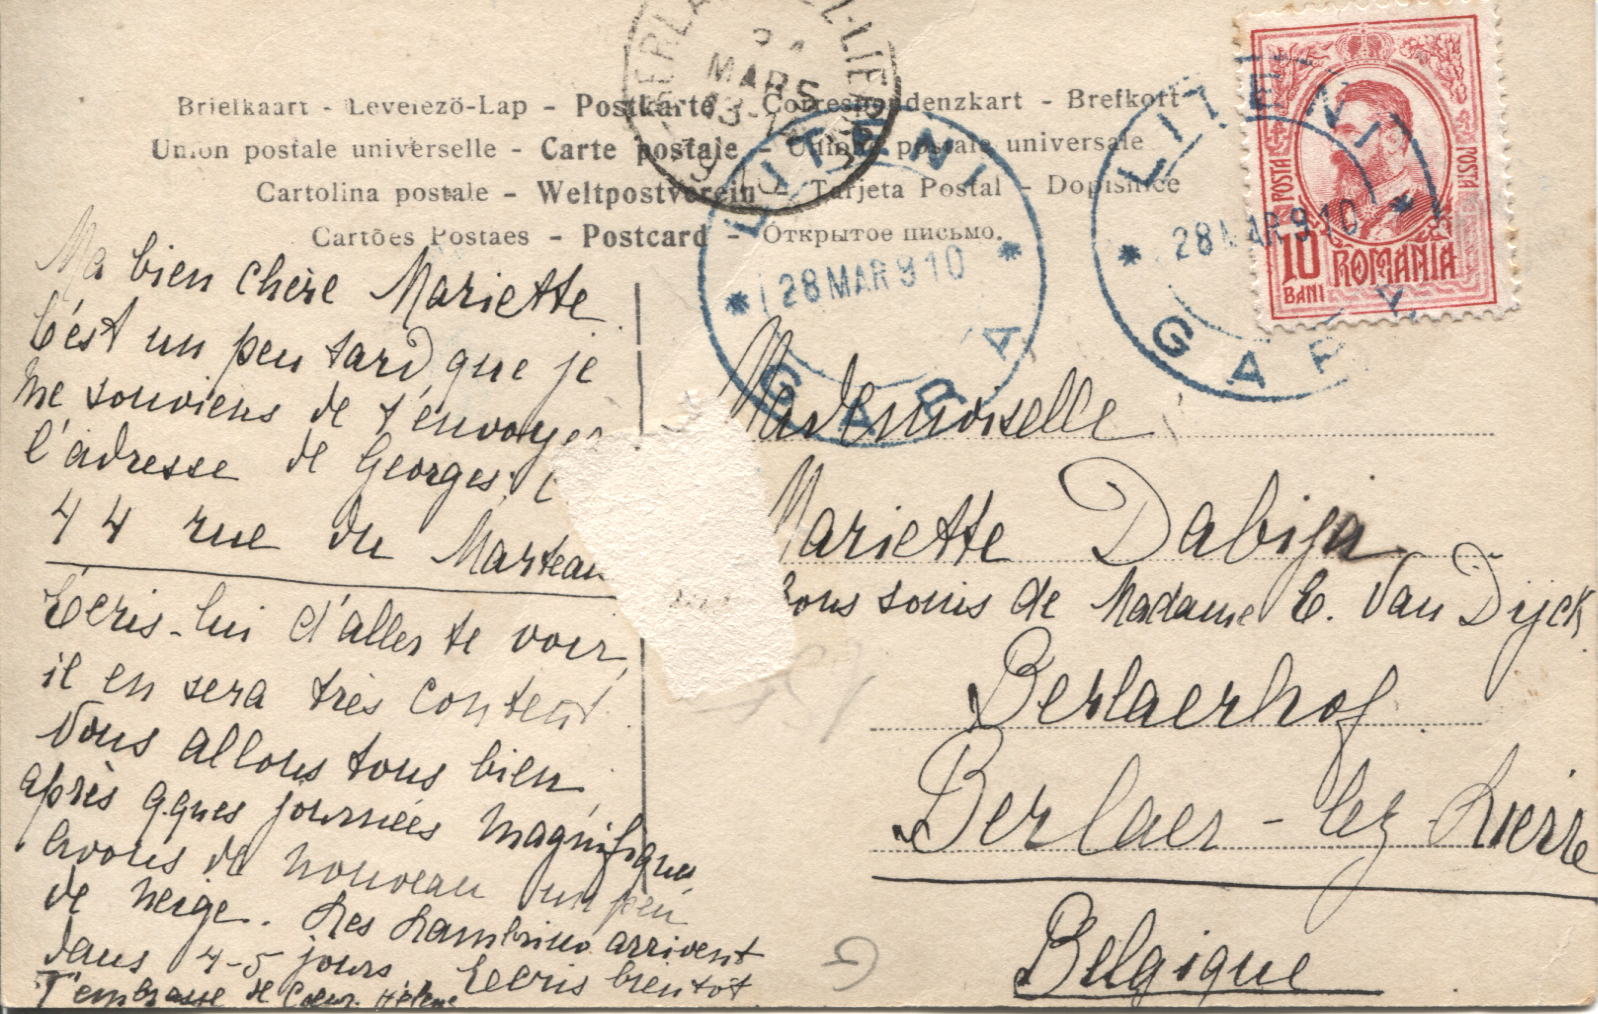 Briefkaart - Levelező-Lap - Postkarte - Correspondenzkart - Brefkort
Union postale universelle - Carte postale - Unione postale universale
Cartolina postale - Weltpostverein - Tarjeta Postal - Dopisnice
Cartões Postaes - Postcard - Открытое письмо.
MARS
LITENI
28 MAR 910
GARA
LITENI
28 MAR 910
GARA
POSTA
POSTA
10
BANI
ROMANIA
Ma bien chère Mariette
C'est un peu tard que je
me souviens de t'envoyer
l'adresse de Georges:
44 rue du Marteau
Ecris-lui d'aller te voir,
il en sera très content
Nous allons tous bien,
après qques journées magnifiques
avons de nouveau un peu
de neige. Les Lambrino arrivent
dans 4-5 jours. Ecris bientôt
T'embrasse de coeur Hélène
Mademoiselle
Mariette Dabija
Bons soins de Madame E. Van Dijck
Berlaerhof
Berlaer-lez-Lierre
Belgique